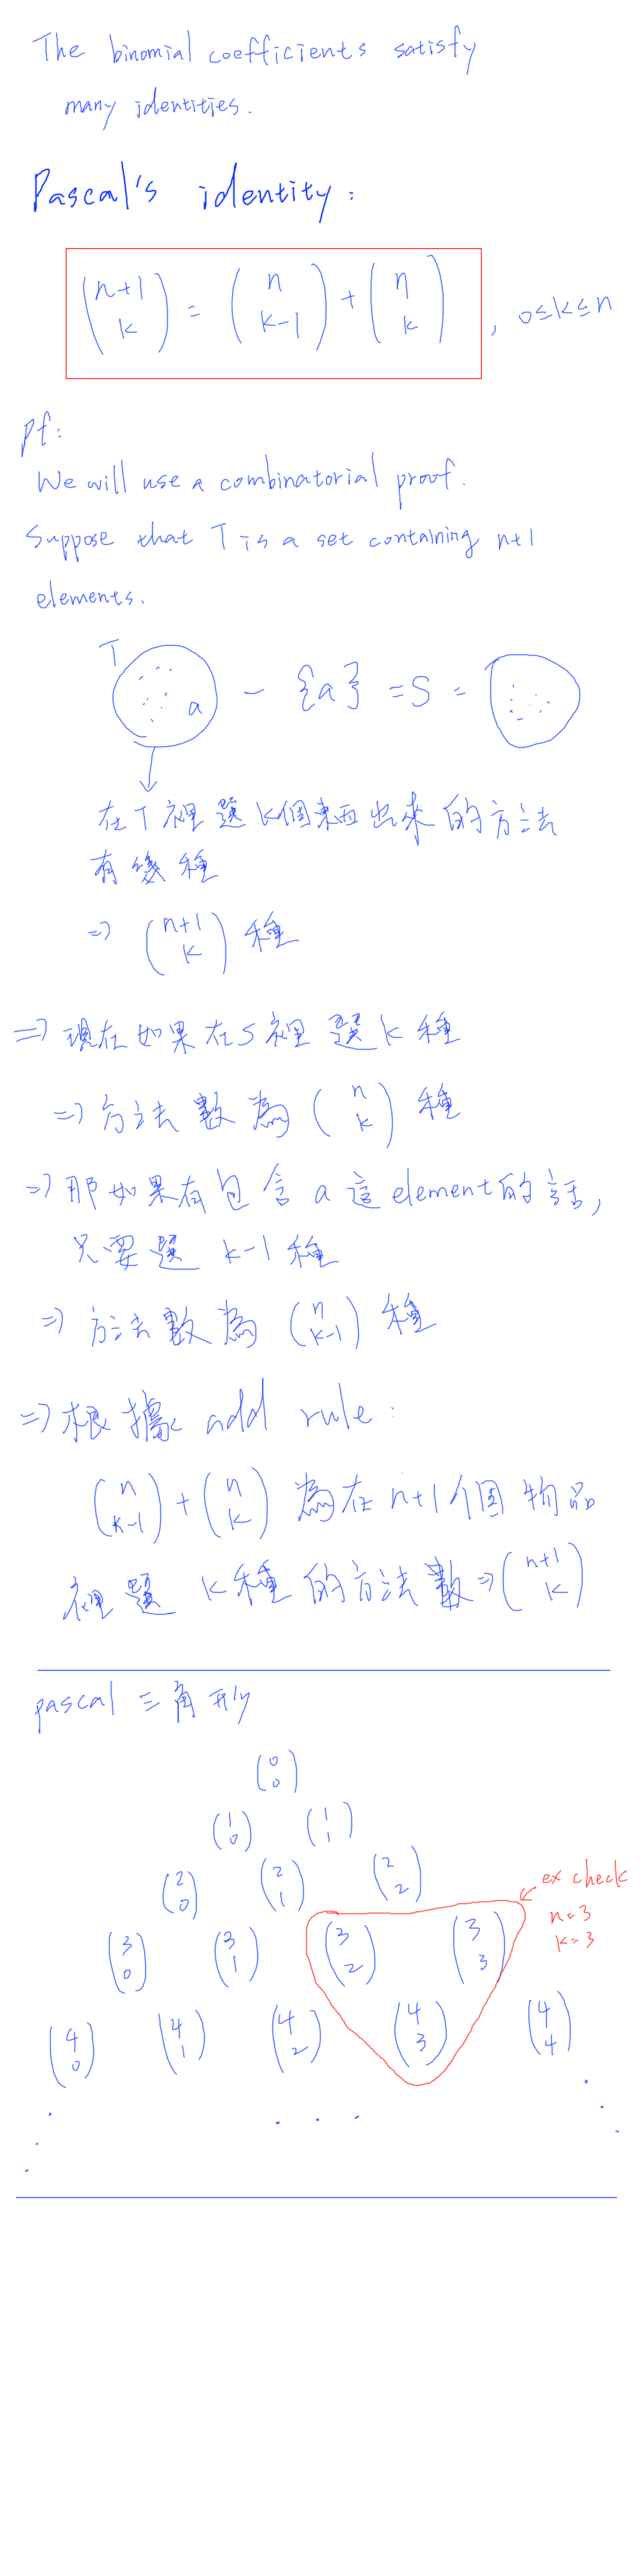 The binomial coefficients satisfy
many identities.
Pascal's identity:
(n+1 k) = (n k-1) + (n k), 0≤k≤n
pf:
We will use a combinatorial proof.
Suppose that T is a set containing n+1
elements.
T a - {a} = S =
在T裡選k個東西出來的方法
有幾種
⇒ (n+1 k) 種
⇒ 現在如果在S裡選k種
⇒ 方法數為 (n k) 種
⇒ 那如果有包含a這element的話,
只要選 k-1 種
⇒ 方法數為 (n k-1) 種
⇒ 根據 add rule:
(n k-1) + (n k) 為在n+1個物品
裡選 k種的方法數⇒ (n+1 k)
pascal 三角形
(0 0)
(1 0) (1 1)
(2 0) (2 1) (2 2)
ex check
n=3
k=3
(3 0) (3 1) (3 2) (3 3)
(4 0) (4 1) (4 2) (4 3) (4 4)